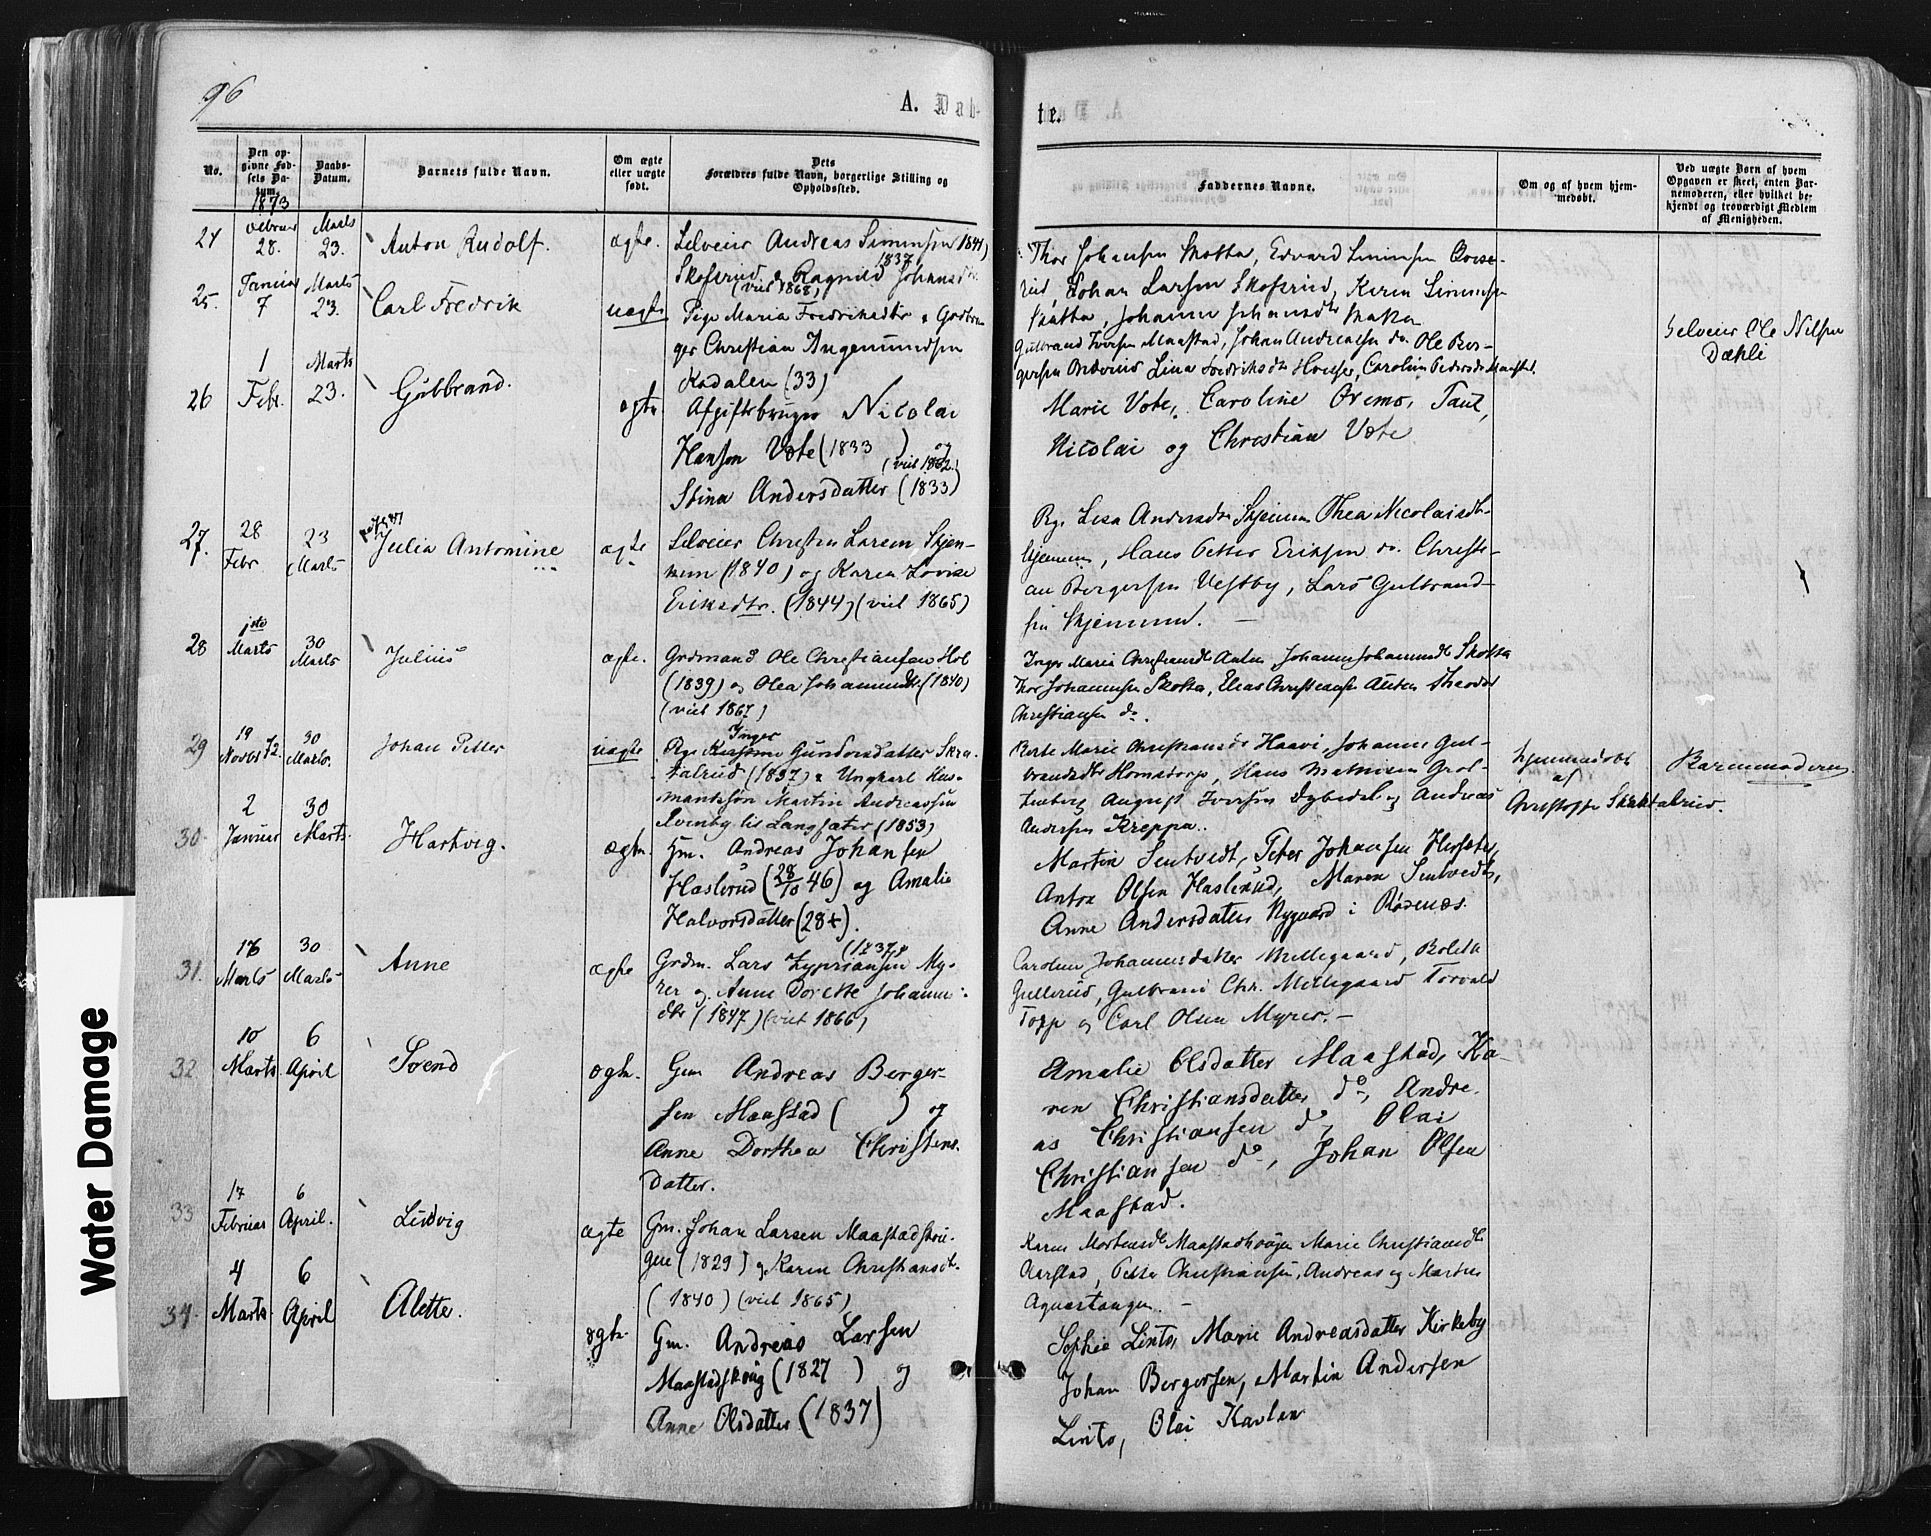 96
A. Dab-
te.
No.
Den op-
givne Fød-
sels Da-
tum.
1873
Daabs-
Datum.
Barnets fulde Navn.
Om ægte
eller uægte
født.
Dets
Forældres fulde Navn, borgerlige Stilling og
Opholdssted.
Faddernes Navne.
Om og af hvem hjem-
medøbt.
Ved uægte Børn af hvem
Opgaven er skeet, enten Bar-
nemoderen, eller hvilket be-
kjendt og troværdigt Medlem
af Menigheden.
Februar Marts
28. 23. Anton Rudolf. ægte. Selveier Andreas Simensen 1841)
1837
Skofsrud & Ragnild Johansdtr.
(viet 1868)
Thor Johansen Skotta, Edvard Simensen
Johan Larsen Skofsrud, Karen Simens
Skotta, Johanne Skotta
25. Januar Marts
7 23. Carl Fredrik uægte Pige Maria Fredriksdtr &
ger Christian Ingemundsen
Kadalen (33)
Gulbrand Iversen Maastad, Johan Andreasen do. Ole Ber-
gersen Lina Fredriksdtr Caroline Pedersdtr Maastad.
Selveier Ole Nilsen
Dæhli
26 1 Marts
Febr. 23. Gulbrand. ægte Afgiftsbruger Nicolai
Hansen Vøte (1833 ) og
(viet 1862.)
Stina Andersdatter (1833)
Marie Vøte, Caroline Ørems,
Nicolai og Christian Vøte
27. 28 23
Febr Marts Julia Antomine ægte Selveier Christen Larsen Skjen-
num (1840) og Karen Lovise
Eriksdtr. (1844) (viet 1865)
Pge Lisa Andersdtr Skjennum Thea Nicolaisdtr
Skjennum, Hans Petter Eriksen do. Christi-
an Bergersen Vestby, Lars Gulbrand-
sen Skjennum. —
28 1ste 30
Marts Marts Julius ægte. Grdmand Ole Christiansen Hol
(1839) og Olea Johannesdtr (1840)
(viet 1867)
Inger Maria Christiansdtr Johanne Johannesdtr Skotta
Thor Johannesen Skotta, Elias Christiansen Theodor
Christiansen do.
29 19 30
Novbr 72. Marts. Johan Petter uægte. Inger
Pge Gundersdatter Skra-
talrud (1837) & Ungkarl Hus-
mandssøn Martin Andreassen
Svenby til Langsæter (1853)
Berte Marie Christiansdtr Haavi, Johanne Gul-
brandsdtr Homstorp, Hans Mathisen Grol-
August Iversen Dybedal og Andreas
Andersen Kreppa.
hjemmedøbt
af
Christoffer Skratalrud.
Barnemoderen
30. 2 30
Januar Marts Hartvig. ægte. Gm. Andreas Johansen
Haslerud (28/10 46) og Amalie
Halvorsdatter (28
Martin Sentvedt, Peter Johansen
Anton Olsen Haslerud, Maren Sentvedt,
Anne Andersdatter Nygaard i Rødenæs.
31. 16 30
Marts Marts Anne ægte (1837)
Grdm. Lars Zypriansen My-
rer og Anne Dorette Johannes-
dtr (1847) (viet 1866)
Caroline Johannesdatter Mellegaard, Bolette
Gullerud, Gulbrand Chr. Mellegaard Torvald
Topp og Carl Olsen Myrer. —
32 10 6
Marts April Svend ægte. Gm Andreas Berger-
sen Maastad ( ) og
Anne Dorthea Christens
datter.
Amalie Olsdatter Maastad, Ka-
ren Christiansdatter do, Andre-
as Christiansen do, Olai
Christiansen do, Johan Olsen
Maastad.
33 17 6
Februar April. Ludvig ægte Gm. Johan Larsen Maastadskou-
gen (1829) og Karen Christiansdt.
(1840) (viet 1865)
Karen Mortensdt Maastadskougen Marie Christiansdt
Aarstad, Petter Christiansen, Andreas og Martin
Aquastangen. —
34. 4 6
Marts April Alette. ægte. Gm. Andreas Larsen
Maastadskoug (1827 ) og
Anne Olsdatter (1837)
Sophie Linto, Marie Andreasdatter Kirkeby
Johan Bergersen, Martin Andersen
Linto, Olai Karlsen
Water Damage